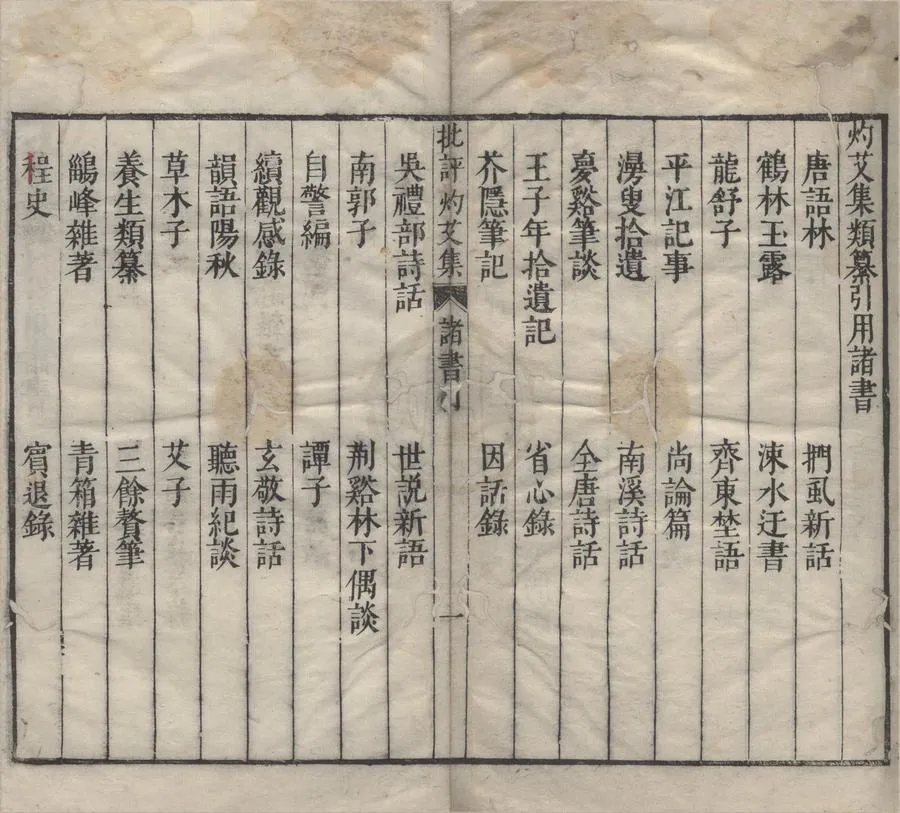 灼艾集類纂引用諸書
唐語林 捫虱新話
鶴林玉露 涑水迂書
龍舒子 齊東埜語
平江記事 尚論篇
澷叟拾遺 南溪詩話
夢谿筆談 全唐詩話
王子年拾遺記 省心錄
芥隱筆記 因話錄
批評灼艾集 諸書 一
吳禮部詩話 世説新語
南郭子 荆谿林下偶談
自警編 譚子
續觀感錄 玄敬詩話
韻語陽秋 聽雨紀談
草木子 艾子
養生類纂 三餘贅筆
鷼峰雜著 青箱雜著
桯史 賓退錄